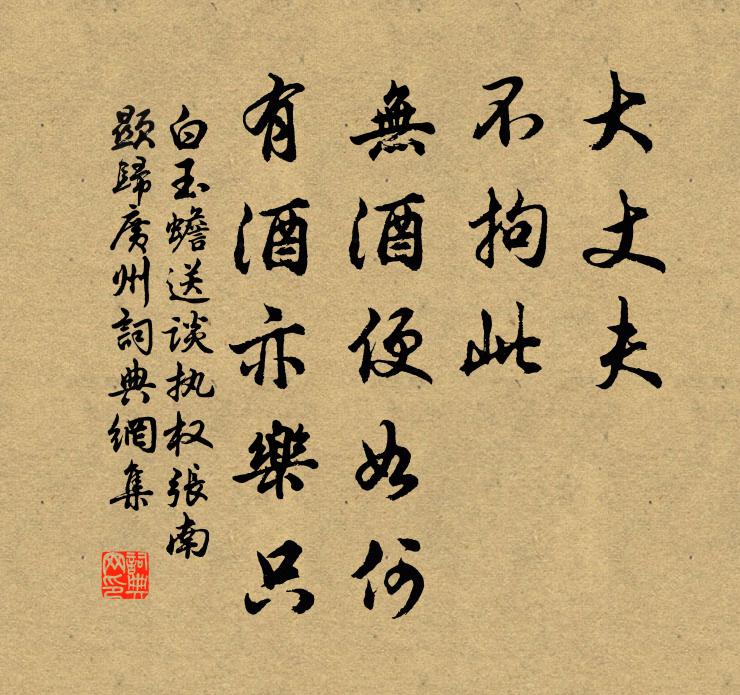 大丈夫
不拘此
無酒便如何
有酒亦樂只
白玉蟾送谈执权張南
顯歸廣州詞典網集
詞典
网印